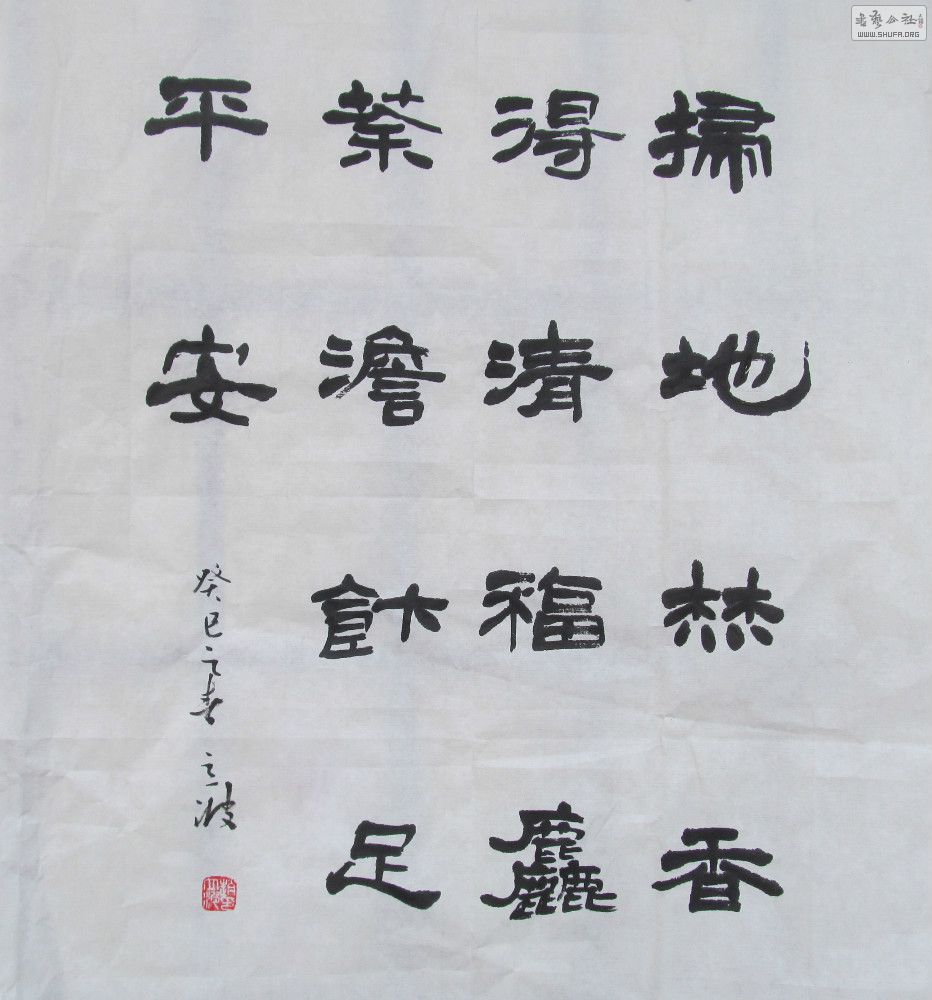 掃地焚香
得清福麤
茶澹飰足
平安
癸巳之春 之波
書藝公社
WWW.SHUFA.ORG